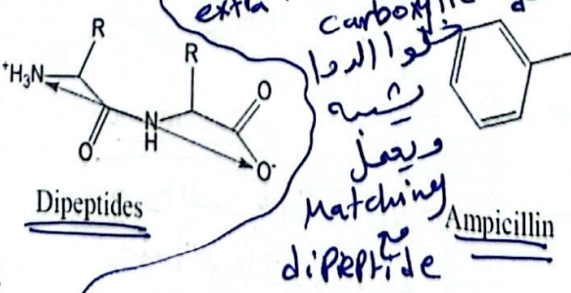 extra
carboxylic
خلوا الدوا
يشبه
ويعمل
Matching
مع
dipeptide
R
R
+H3N
O
N
H
O
O-
Dipeptides
Ampicillin